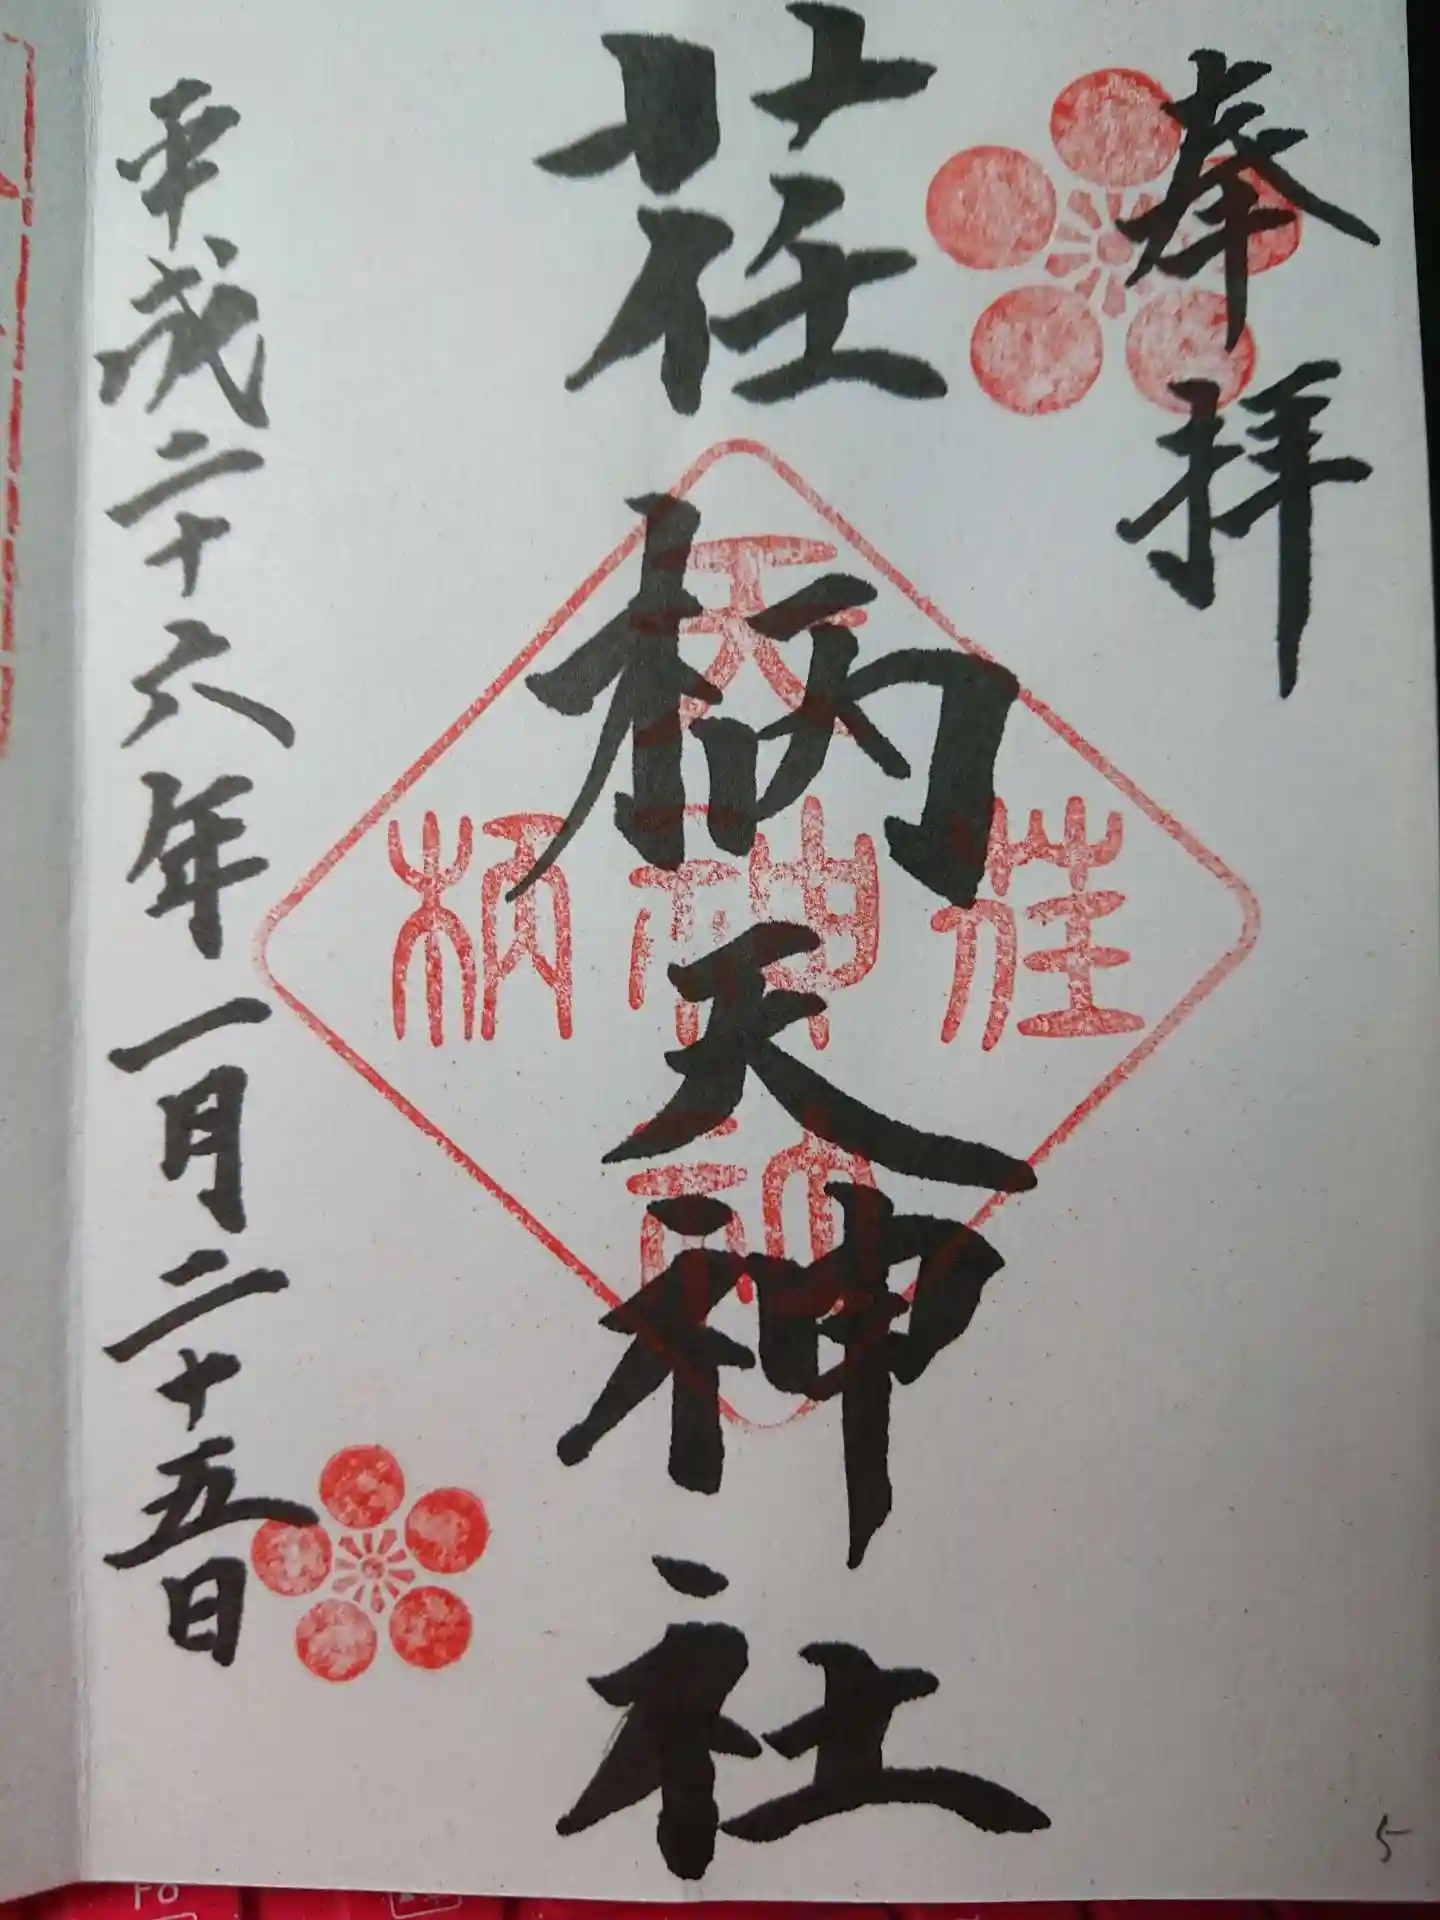 奉拝
荏柄天神社
天
荏神柄
社
平成二十六年一月二十五日
5
F6